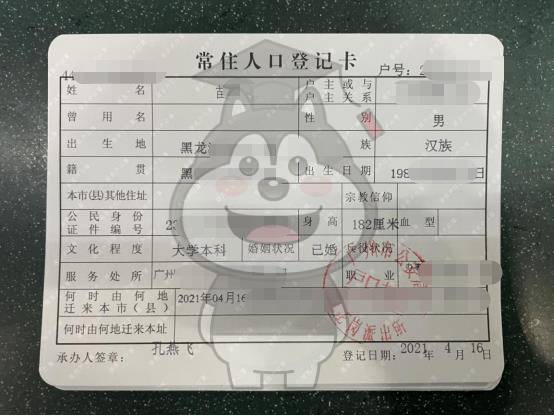 常住人口登记卡
户号：2
姓 名 苗 户主或与户主关系
曾用名 性别 男
出生地 黑龙 族 汉族
籍贯 黑 出生日期 198
本市(县)其他住址 宗教信仰
公民身份证件编号 23 身高 182厘米 血型
文化程度 大学本科 婚姻状况 已婚 兵役状况
服务处所 广州 职业
何时由何地迁来本市（县） 2021年04月16
何时由何地迁来本址
承办人签章： 孔燕飞 登记日期：2021年 4月 16日